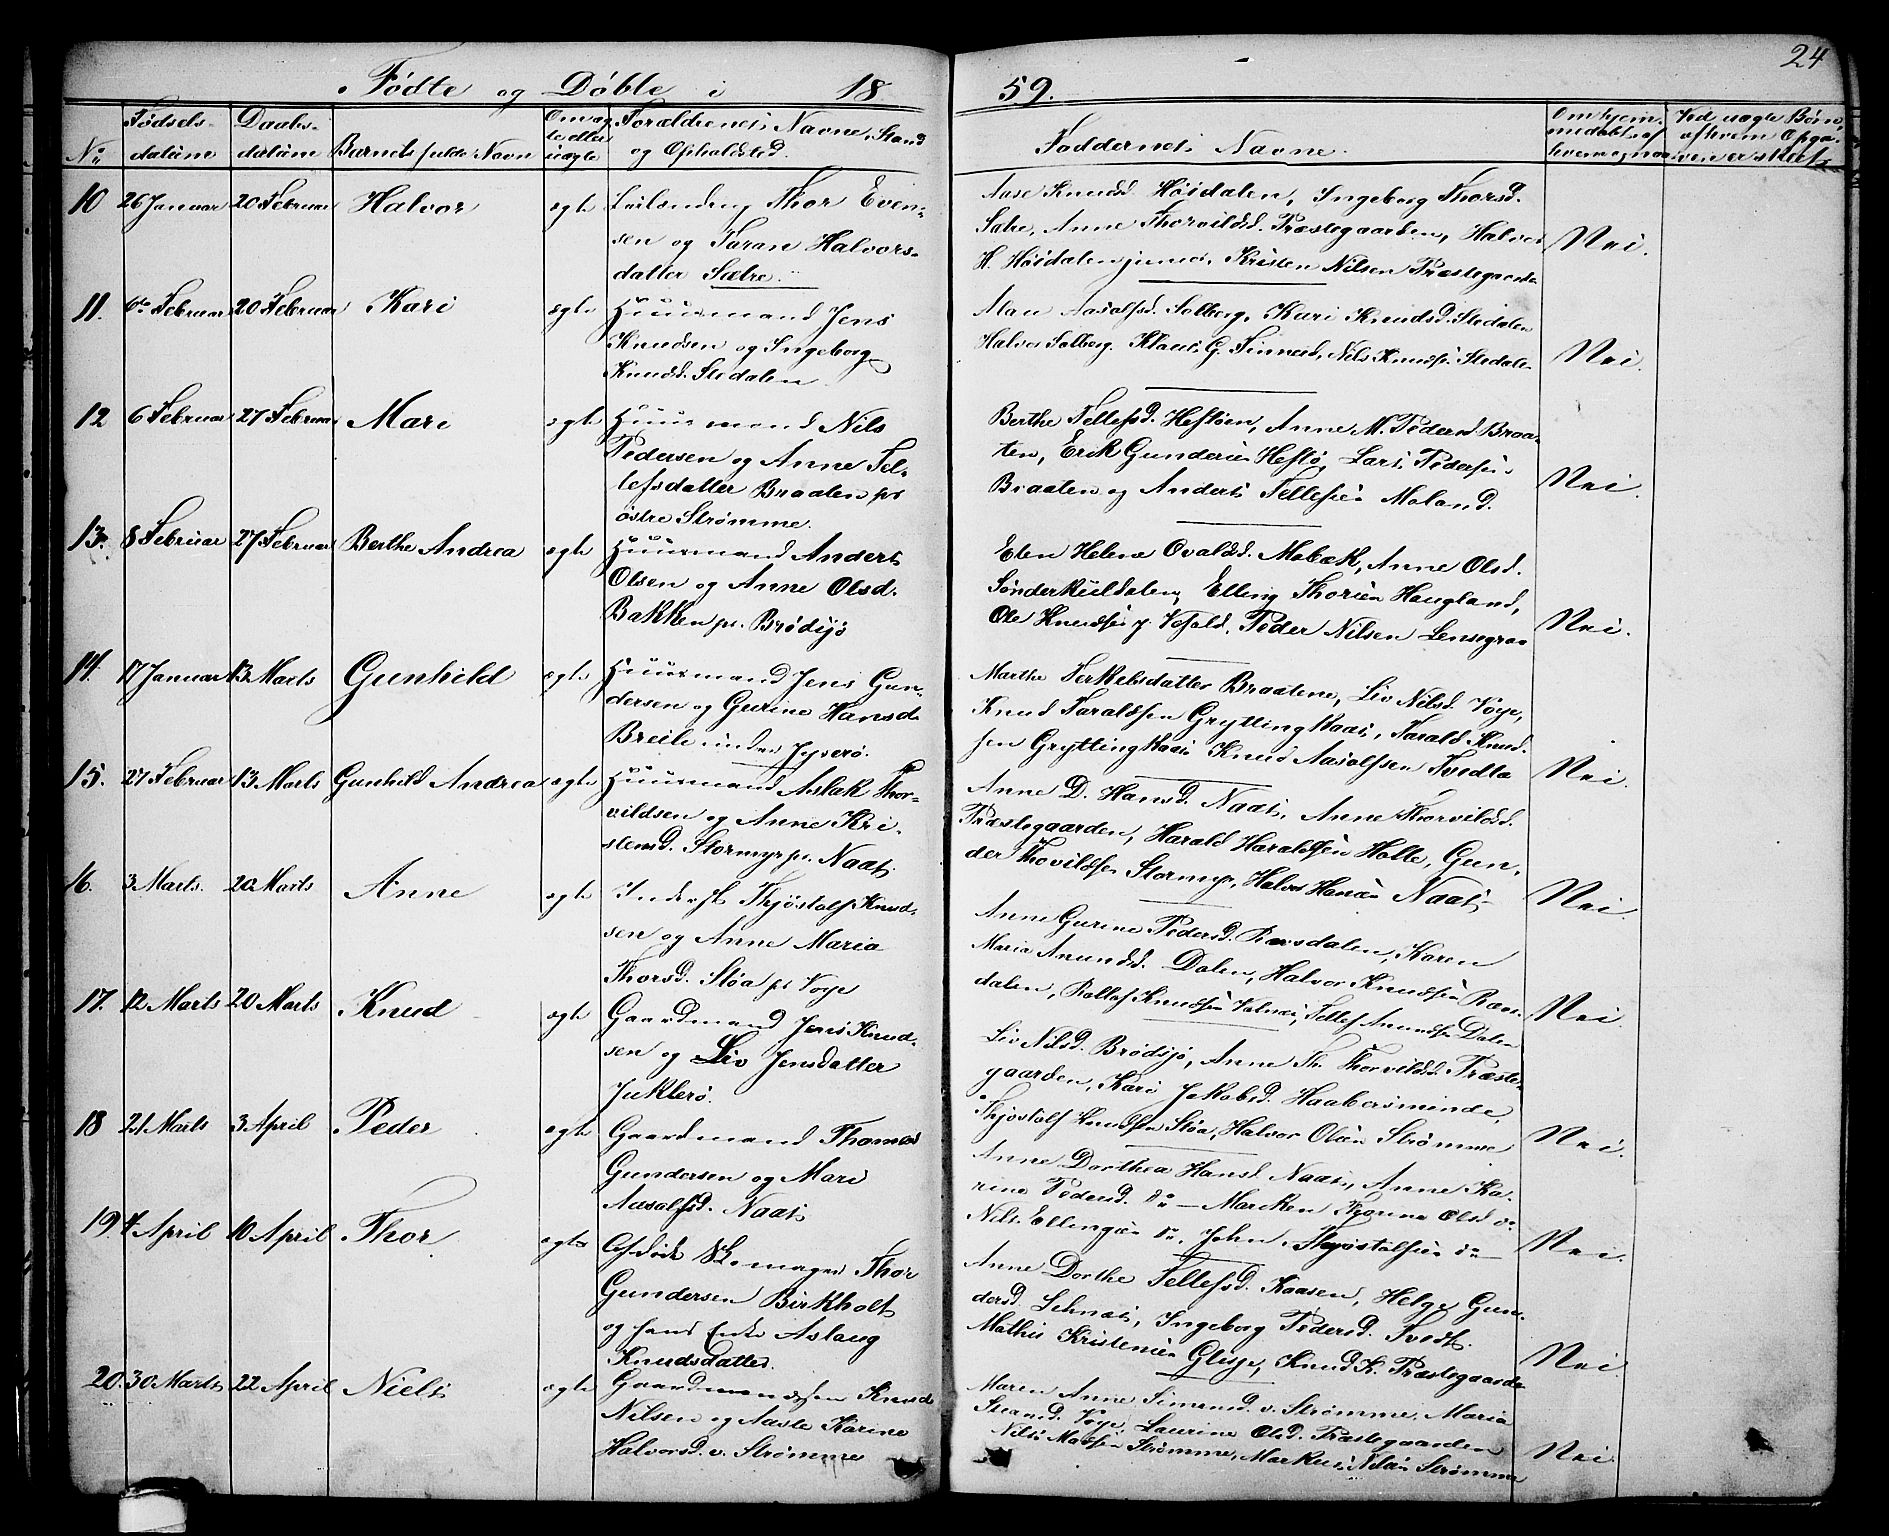 24
Fødte og Døbte i 1859.
No
Fødsels-
datume
Daabs-
datume
Barnets fulde Navn
Om æg-
te eller
uægte
Forældrenes Navne, Stand
og Opholdsted.
Faddernes Navne.
Om hjem-
medøbt af
hvem og naar
Ved uægte Børn,
af hvem Opga-
ven er skeet
10 26 Januar 20 Februar Halvor ægte Thor Even-
sen og Taran Halvors-
datter Sætre.
Aase Knudsd. Høidalen, Ingeborg Thorsd.
Sætre, Anne Thorvildsd. Præstegaarden, Halvor
H. Høidalen junior, Kristen Nilsen Præstegaarden
Nei.
11. 6te Februar 20 Februar Kari ægte Huusmand Jens
Knudsen og Ingeborg
Knudsd. Stedalen
Aasolfsd. Solberg, Kari Knudsd. Stedalen
Halvor Solberg. Klaus G. Nils Knudsen Stedalen
Nei.
12 6 Februar 27 Februar Mari ægte Huusmand Nils
Pedersen og Anne Tel-
lefsdatter Braaten pr
østre Strømme.
Berthe Tellefsd. Heftøen, Anne M. Pedersd Braa-
ten, Erik Gundersen Heftø, Lars Pedersen
Braaten og Anders Tellefsen Moland.
Nei.
13. 8 Februar 27 Februar Berthe Andrea ægte Huusmand Anders
Olsen og Anne Olsd.
Bakken pr. Brødsjø
Helene Mobæk, Anne Olsd.
Sønderkuildalen, Elling Thorsen Haugland,
Ole Knudsen Peder Nilsen
Nei.
14. 17 Januar 13 Marts Gunhild ægte Huusmand Jens Gun-
dersen og Gurine Hansd.
under
Marthe Terkelsdatter Braatene, Liv Nilsd. Voje,
Knud Taraldsen Gryttingkaas, Tarald Knud-
sen Gryttingkaas Knud Aasolfsen Tvedta
Nei.
15. 27 Februar 13 Marts Gunhild Andrea ægte Huusmand Aslak Thor-
vildsen og Anne Kri-
stensd. Stormyr pr. Naas.
Anne D. Hansd. Naas, Anne Thorvildsd.
Præstegaarden, Harald Haraldsen Holte, Gun-
der Thovildsen Stormyr, Halvor Hansen Naas
Nei
16. 3 Marts. 20 Marts Anne ægte Inderst Thjøstolf Knud-
sen og Anne Maria
Thorsd. Støa pr Voje
Anne Gurine Pedersd. Rønsdalen, Karen
Maria Amundsd. Dalen, Halvor Knudsen Røns-
dalen, Rollef Knudsen Tellef Amundsen Dalen
Nei.
17. 12 Marts 20 Marts Knud ægte Gaardmand Jens Knud-
sen og Liv Jensdatter
Jukterø.
Liv Nilsd. Brødsjø, Anne Th. Thorvildsd. Præste-
gaarden, Kari Jakobsd. Haabersminde,
Thjøstolf Knudsen Støa, Halvor Olsen Strømme
Nei.
18 21 Marts 3 April Peder ægte Gaardmand Thomas
Gundersen og Mari
Aasolfsd. Naas
Anne Dorthea Hansd. Naas, Anne Ka-
rine Pedersd. do - Marcken Karine Olsd do
Nils Ellingsen do, John Thjøstolfsen do
Nei.
19 4 April 10 April Thor. ægte Afdøde Skomager Thor
Gundersen Birkholt
og hans Enke Aslaug
Knudsdatter.
Anne Dorthe Tellefsd. Kaasen, Helge Gun-
dersd. Ingeborg Pedersd. Tvedt.
Mathis Kristensen Glisje, Knud K. Præstegaarden
Nei.
20. 30 Marts 22 April Niels ægte Knud
Nilsen og Aaste Karine
Halvorsd. v. Strømme
Maren Anne Simensd. v. Strømme, Maria
Voje, Laurine Olsd. Præstegaarden
Nils Madsen Strømme, Markus Nilsen Strømme
Nei